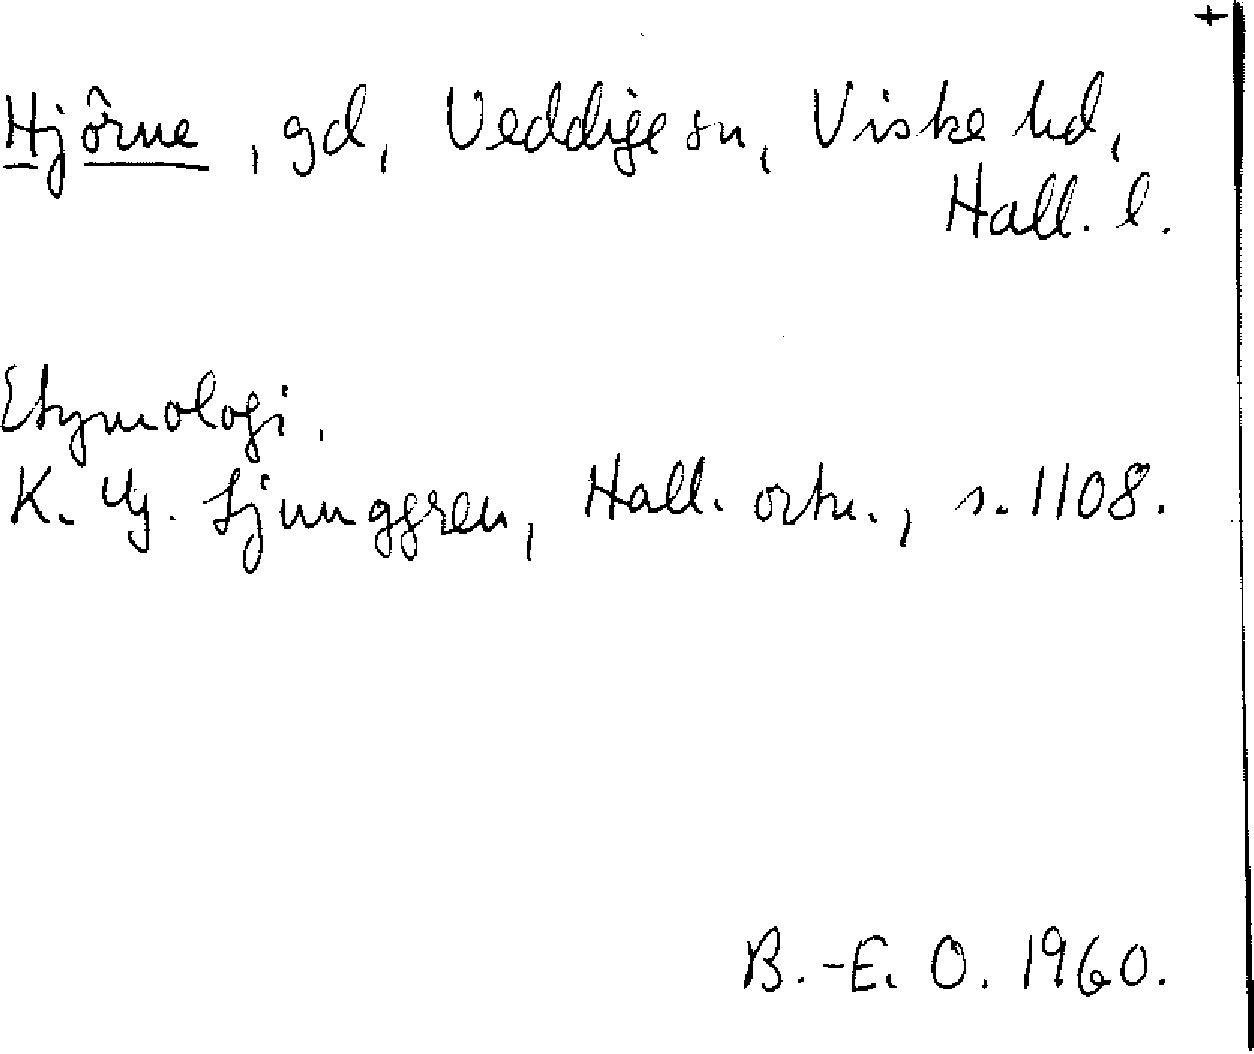 +
Hjörne, gd, Veddige sn, Viske hd,
Hall. l.
Etymologi.
K. Hj. Ljunggren, Hall. ortn., s. 1108.
B.-E. O. 1960.